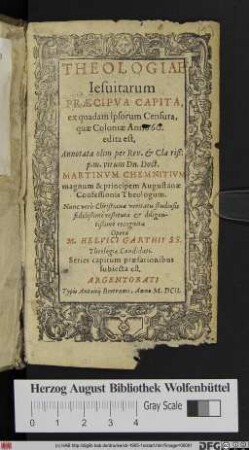 THEOLOGIAE
Iesuitarum
PRÆCIPVA CAPITA,
ex quadam ipsorum Censura,
quæ Coloniæ Anno
edita est,
Annotata olim per Rev. & Cla riss.
virum Dn. Doct.
MARTINVM CHEMNITIVM
magnum & principem Augustanæ
Confessionis Theologum.
Nunc verò Christianæ veritatis studiosis
fidelissimè restituta & diligentissimè recognita
Opera
M. HELVICI GARTHII SS.
Theologiæ Candidati.
Series capitum præfationibus
subiecta est.
ARGENTORATI
Typis Antonij Bertrami, Anno M. DCII.
Herzog August Bibliothek Wolfenbüttel
0 1 2 3 4
Gray Scale